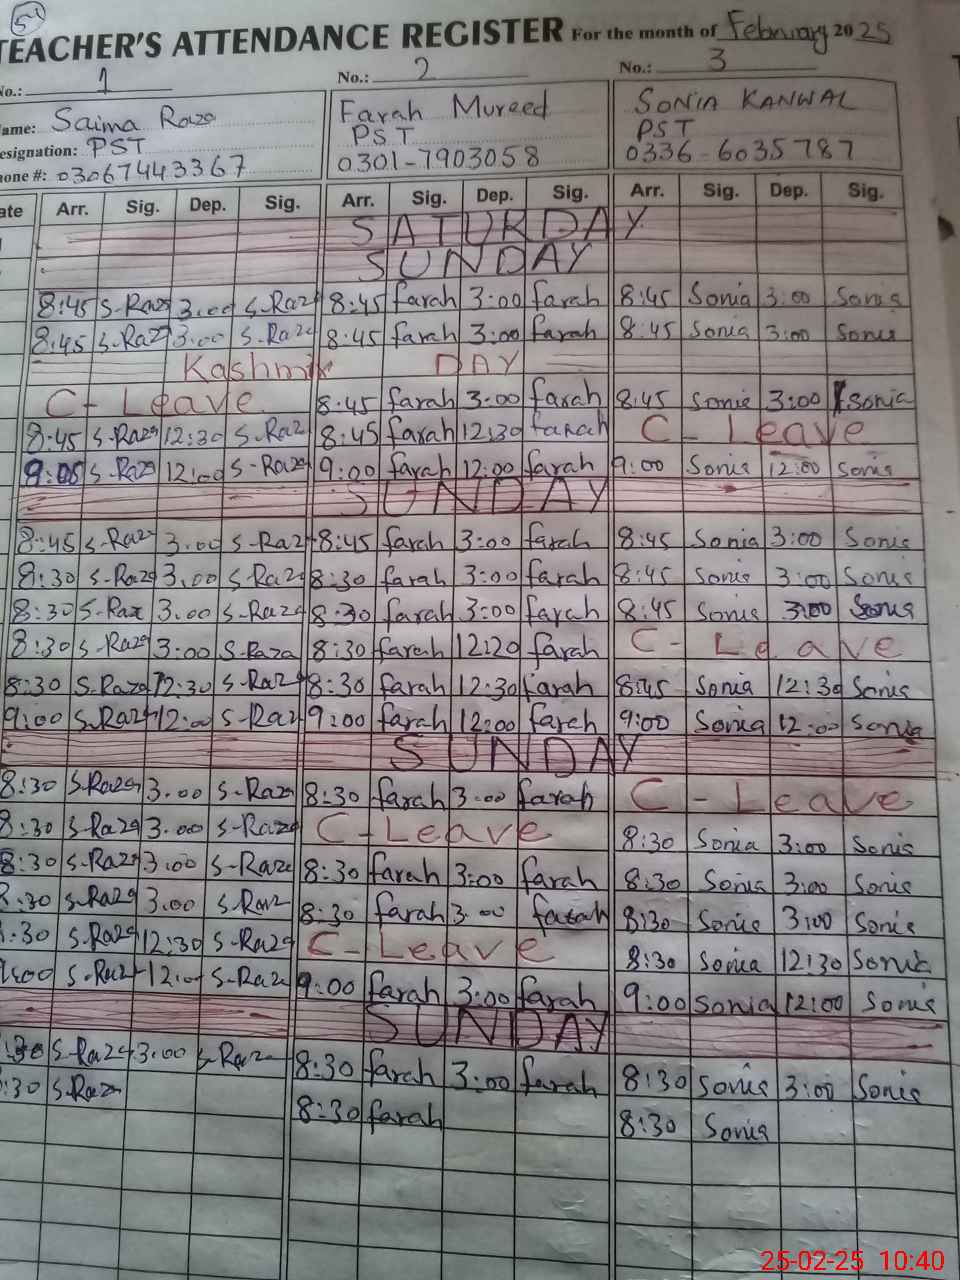 54
TEACHER'S ATTENDANCE REGISTER For the month of February 2025
No.: 1 No.: 2 No.: 3
Name: Saima Raza Farah Mureed SONIA KANWAL
Designation: PST PST PST
Phone #: 03067443367 0301-7903058 0336-6035787
Date Arr. Sig. Dep. Sig. Arr. Sig. Dep. Sig. Arr. Sig. Dep. Sig.
SATURDAY
SUNDAY
8:45 S-Raza 3.00 S-Raza 8:45 farah 3:00 farah 8:45 Sonia 3:00 Sonia
8:45 S-Raza 3.00 S-Raza 8:45 farah 3:00 farah 8:45 Sonia 3:00 Sonia
Kashmir DAY
C- Leave 8:45 farah 3:00 farah 8:45 Sonia 3:00 Sonia
8:45 S-Raza 12:30 S-Raza 8:45 farah 12:30 farah C- Leave
9:05 S-Raza 12:00 S-Raza 9:00 farah 12:00 farah 9:00 Sonia 12:00 Sonia
SUNDAY
8:45 S-Raza 3.00 S-Raza 8:45 farah 3:00 farah 8:45 Sonia 3:00 Sonia
8:30 S-Raza 3.00 S-Raza 8:30 farah 3:00 farah 8:45 Sonia 3:00 Sonia
8:30 S-Raza 3.00 S-Raza 8:30 farah 3:00 farah 8:45 Sonia 3:00 Sonia
8:30 S-Raza 3:00 S-Raza 8:30 farah 12:20 farah C- Leave
8:30 S-Raza 12:30 S-Raza 8:30 farah 12:30 farah 8:45 Sonia 12:30 Sonia
9:00 S-Raza 12:00 S-Raza 9:00 farah 12:00 farah 9:00 Sonia 12:00 Sonia
SUNDAY
8:30 S-Raza 3.00 S-Raza 8:30 farah 3.00 farah C- Leave
8:30 S-Raza 3.00 S-Raza C-Leave 8:30 Sonia 3:00 Sonia
8:30 S-Raza 3:00 S-Raza 8:30 farah 3:00 farah 8:30 Sonia 3:00 Sonia
8:30 S-Raza 3.00 S-Raza 8:30 farah 3.00 farah 8:30 Sonia 3:00 Sonia
8:30 S-Raza 12:30 S-Raza C-Leave 8:30 Sonia 12:30 Sonia
9:00 S-Raza 12:00 S-Raza 9:00 farah 3:00 farah 9:00 Sonia 12:00 Sonia
SUNDAY
8:30 S-Raza 3.00 S-Raza 8:30 farah 3:00 farah 8:30 Sonia 3:00 Sonia
8:30 S-Raza 8:30 farah 8:30 Sonia
25-02-25 10:40